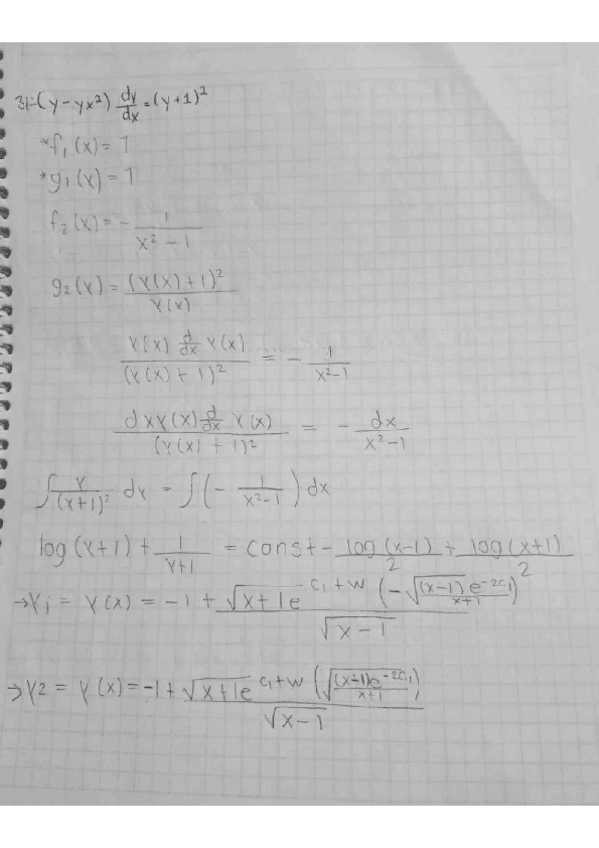 31-(y-yx²) dy/dx = (y+1)²
*f₁(x)= 1
*g₁(y)= 1
f₂(x)= - 1/(x²-1)
g₂(y)= (y(x)+1)²/y(x)
y(x) d/dx y(x)/(y(x)+1)² = - 1/(x²-1)
dxy(x) d/dx y(x)/(y(x)+1)² = - dx/(x²-1)
∫ y/(y+1)² dy = ∫(- 1/(x²-1)) dx
log(y+1) + 1/(y+1) = const - log(x-1)/2 + log(x+1)/2
→y₁ = y(x) = -1 + √(x+1)e^(C₁+W(-√((x-1)e^(-2C₁)/(x+1))))/√(x-1)
→y2 = y(x)= -1+√(x+1)e^(C₁+W(√((x-1)e^(-2C₁)/(x+1))))/√(x-1)